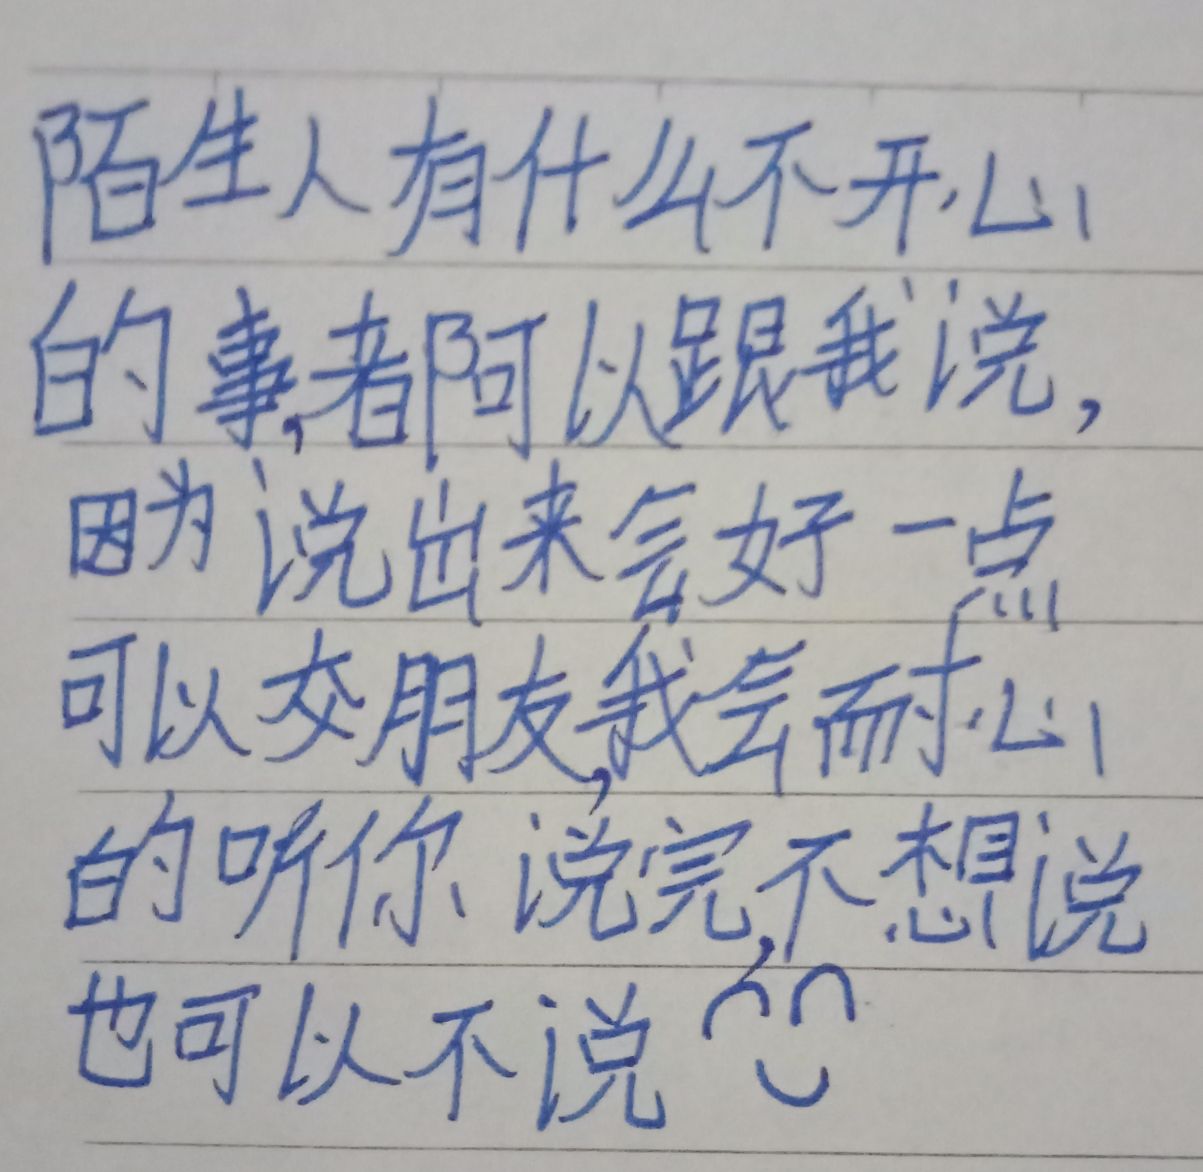 陌生人有什么不开心
的事,都可以跟我说,
因为说出来会好一点
可以交朋友,我会耐心
的听你说完,不想说
也可以不说